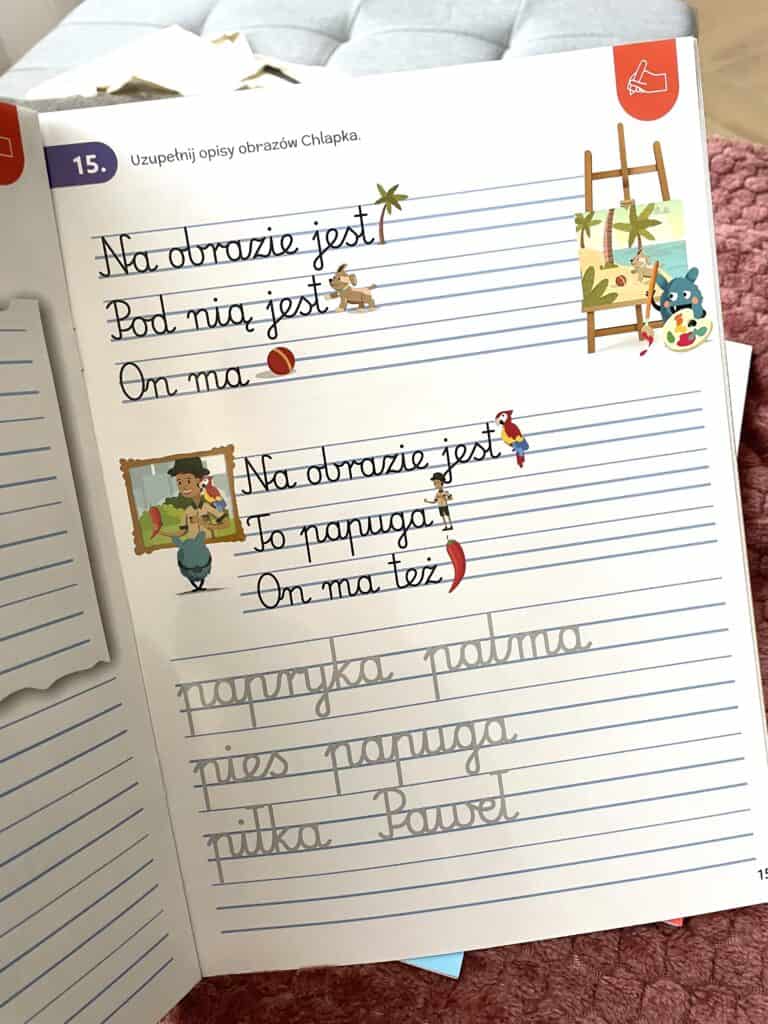 15. Uzupełnij opisy obrazów Chlapka.
Na obrazie jest
Pod nią jest
On ma
Na obrazie jest
To papuga
On ma też
papryka palma
pies papuga
piłka Paweł
15